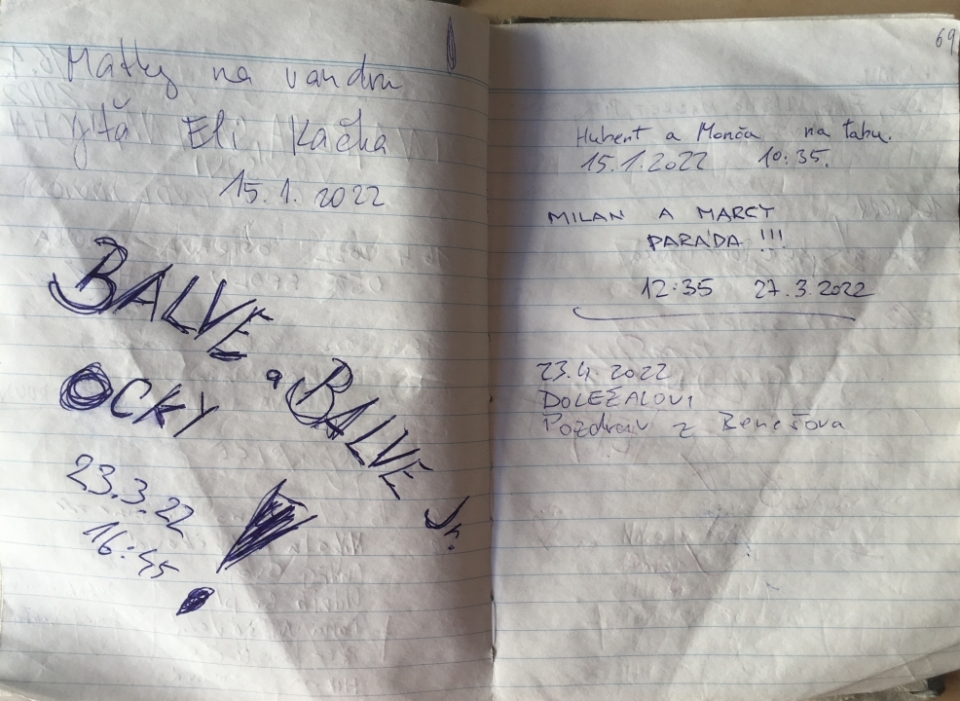 Matky na vandru
Jíťa Eli Kačka
15.1.2022
BALVE a BALVE Jr.
OCKY
23.3.22
16:45
!
69
Hubert a Monča na tahu.
15.1.2022 10:35.
MILAN A MARCY
PARÁDA !!!
12:35 27.3.2022
23.4.2022
DOLEŽALOVI
Pozdrav z Benešova